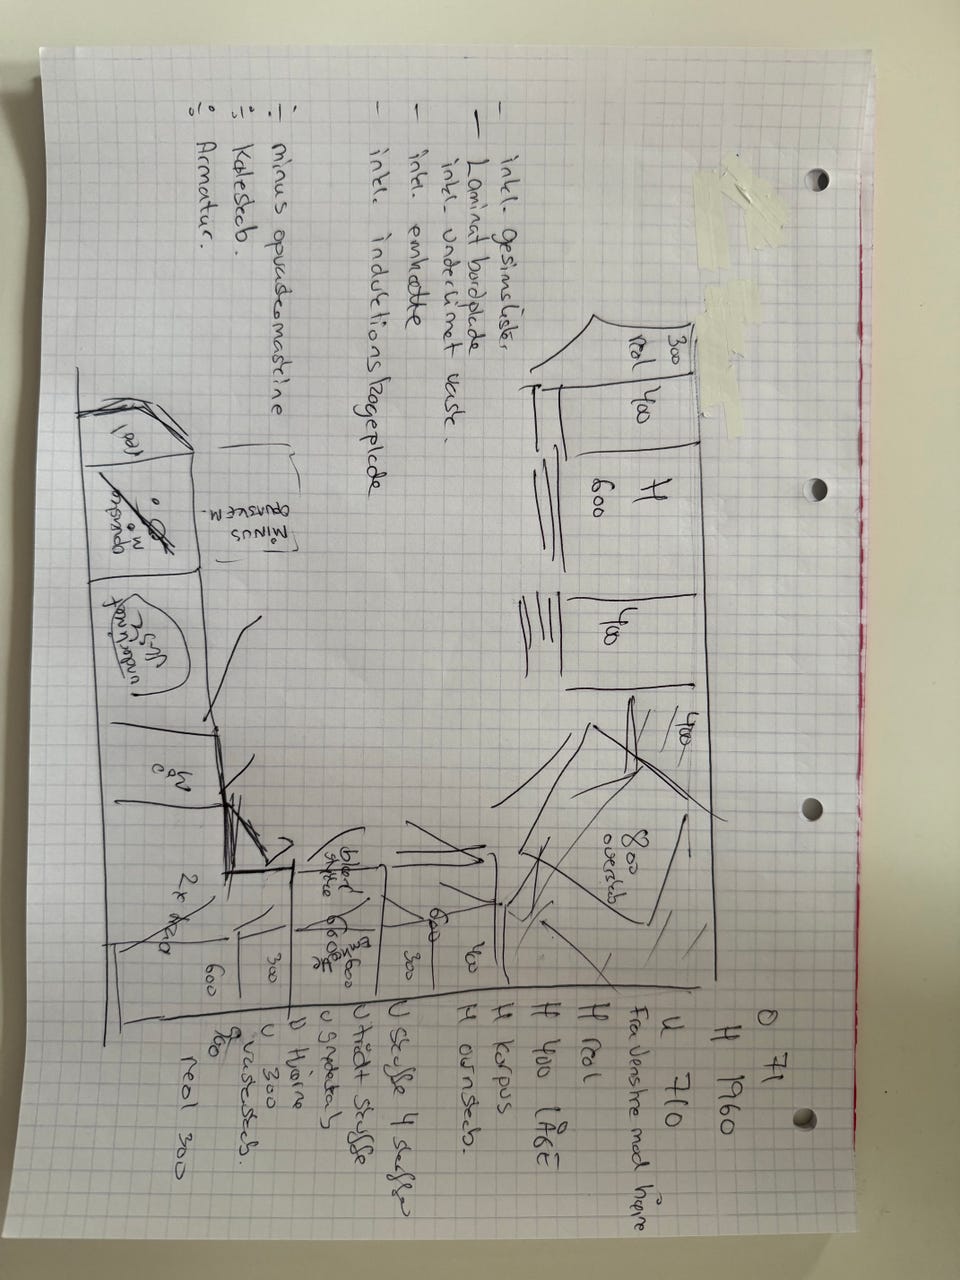 O 71
H 1960
U 710
Fra venstre mod højre
H reol
H 400 LÅGE
H korpus
H ovnskab.
U skuffe 4 skuffer
U trådt skuffe
U grydeskab
U Hjørne
U 300
vaskeskab.
reol 300
300
reol
400
H
600
400
400
800
overskab
400
600
300
600
300
600
2x
reol
MINUS
OPVASKEM.
- inkl. gesimslister
- Laminat bordplade
inkl. underlimet vask.
- inkl. emhætte
- inkl. induktions kogeplade
÷ minus opvaskemaskine
÷ Køleskab.
÷ Armatur.